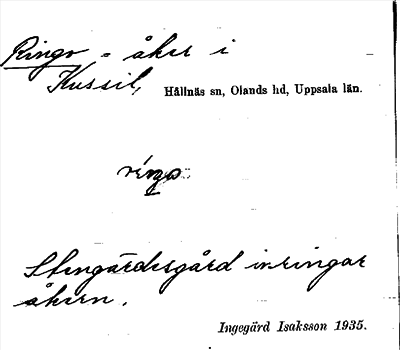 Ringo - åker i
Kussil, Hållnäs sn, Olands hd, Uppsala län.
ringo
Stengärdesgård inringar
åkern.
Ingegärd Isaksson 1935.